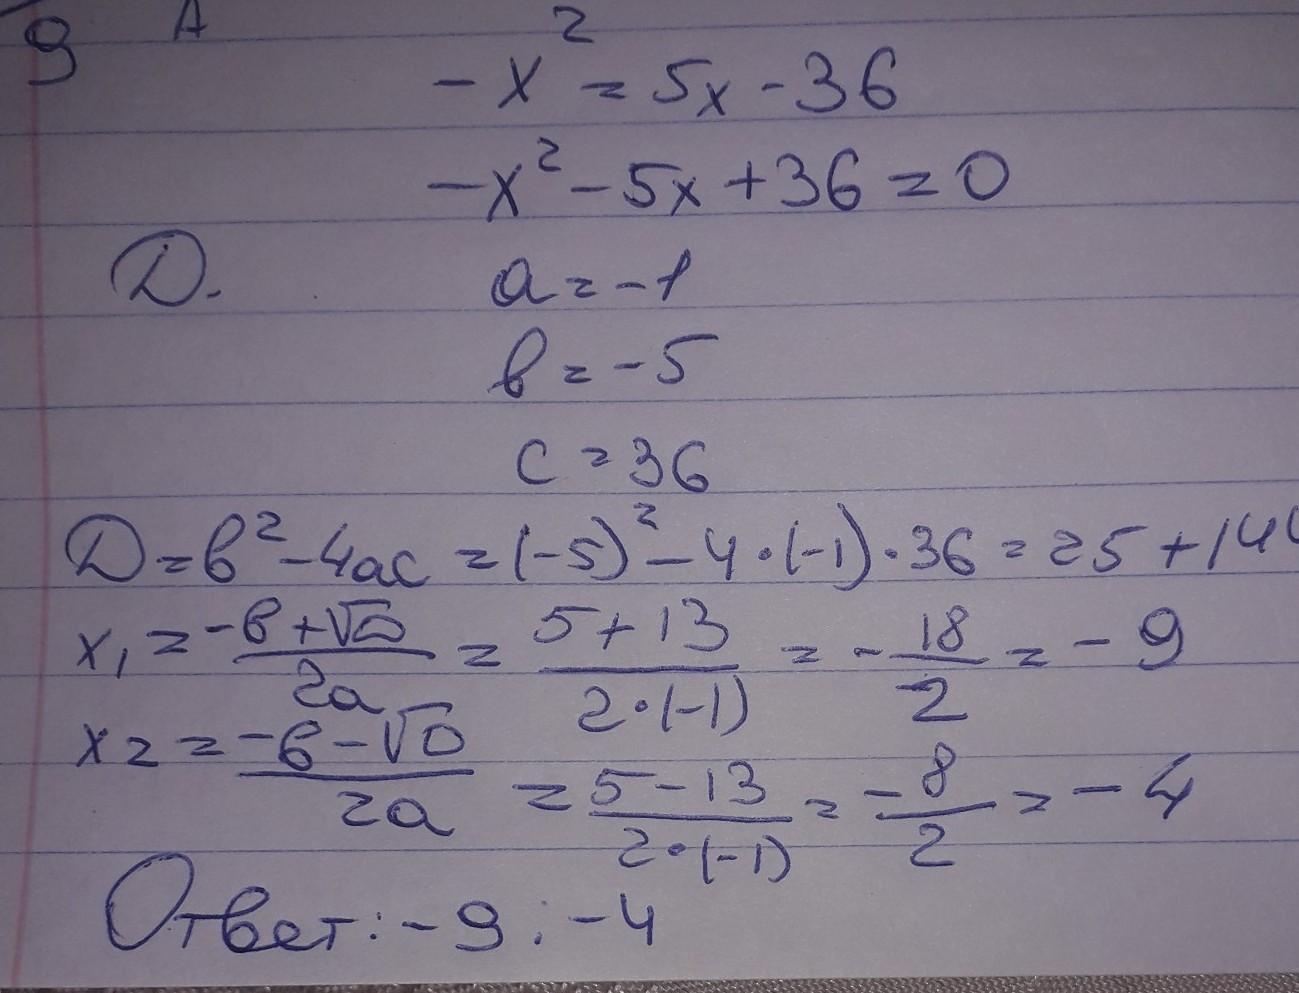 9 A
-x² = 5x - 36
-x² - 5x + 36 = 0
D. a = -1
b = -5
c = 36
D = b² - 4ac = (-5)² - 4·(-1)·36 = 25 + 144
x₁ = (-b + √D)/(2a) = (5 + 13)/(2·(-1)) = -18/-2 = -9
x2 = (-b - √D)/(2a) = (5 - 13)/(2·(-1)) = -8/2 = -4
Ответ: -9; -4